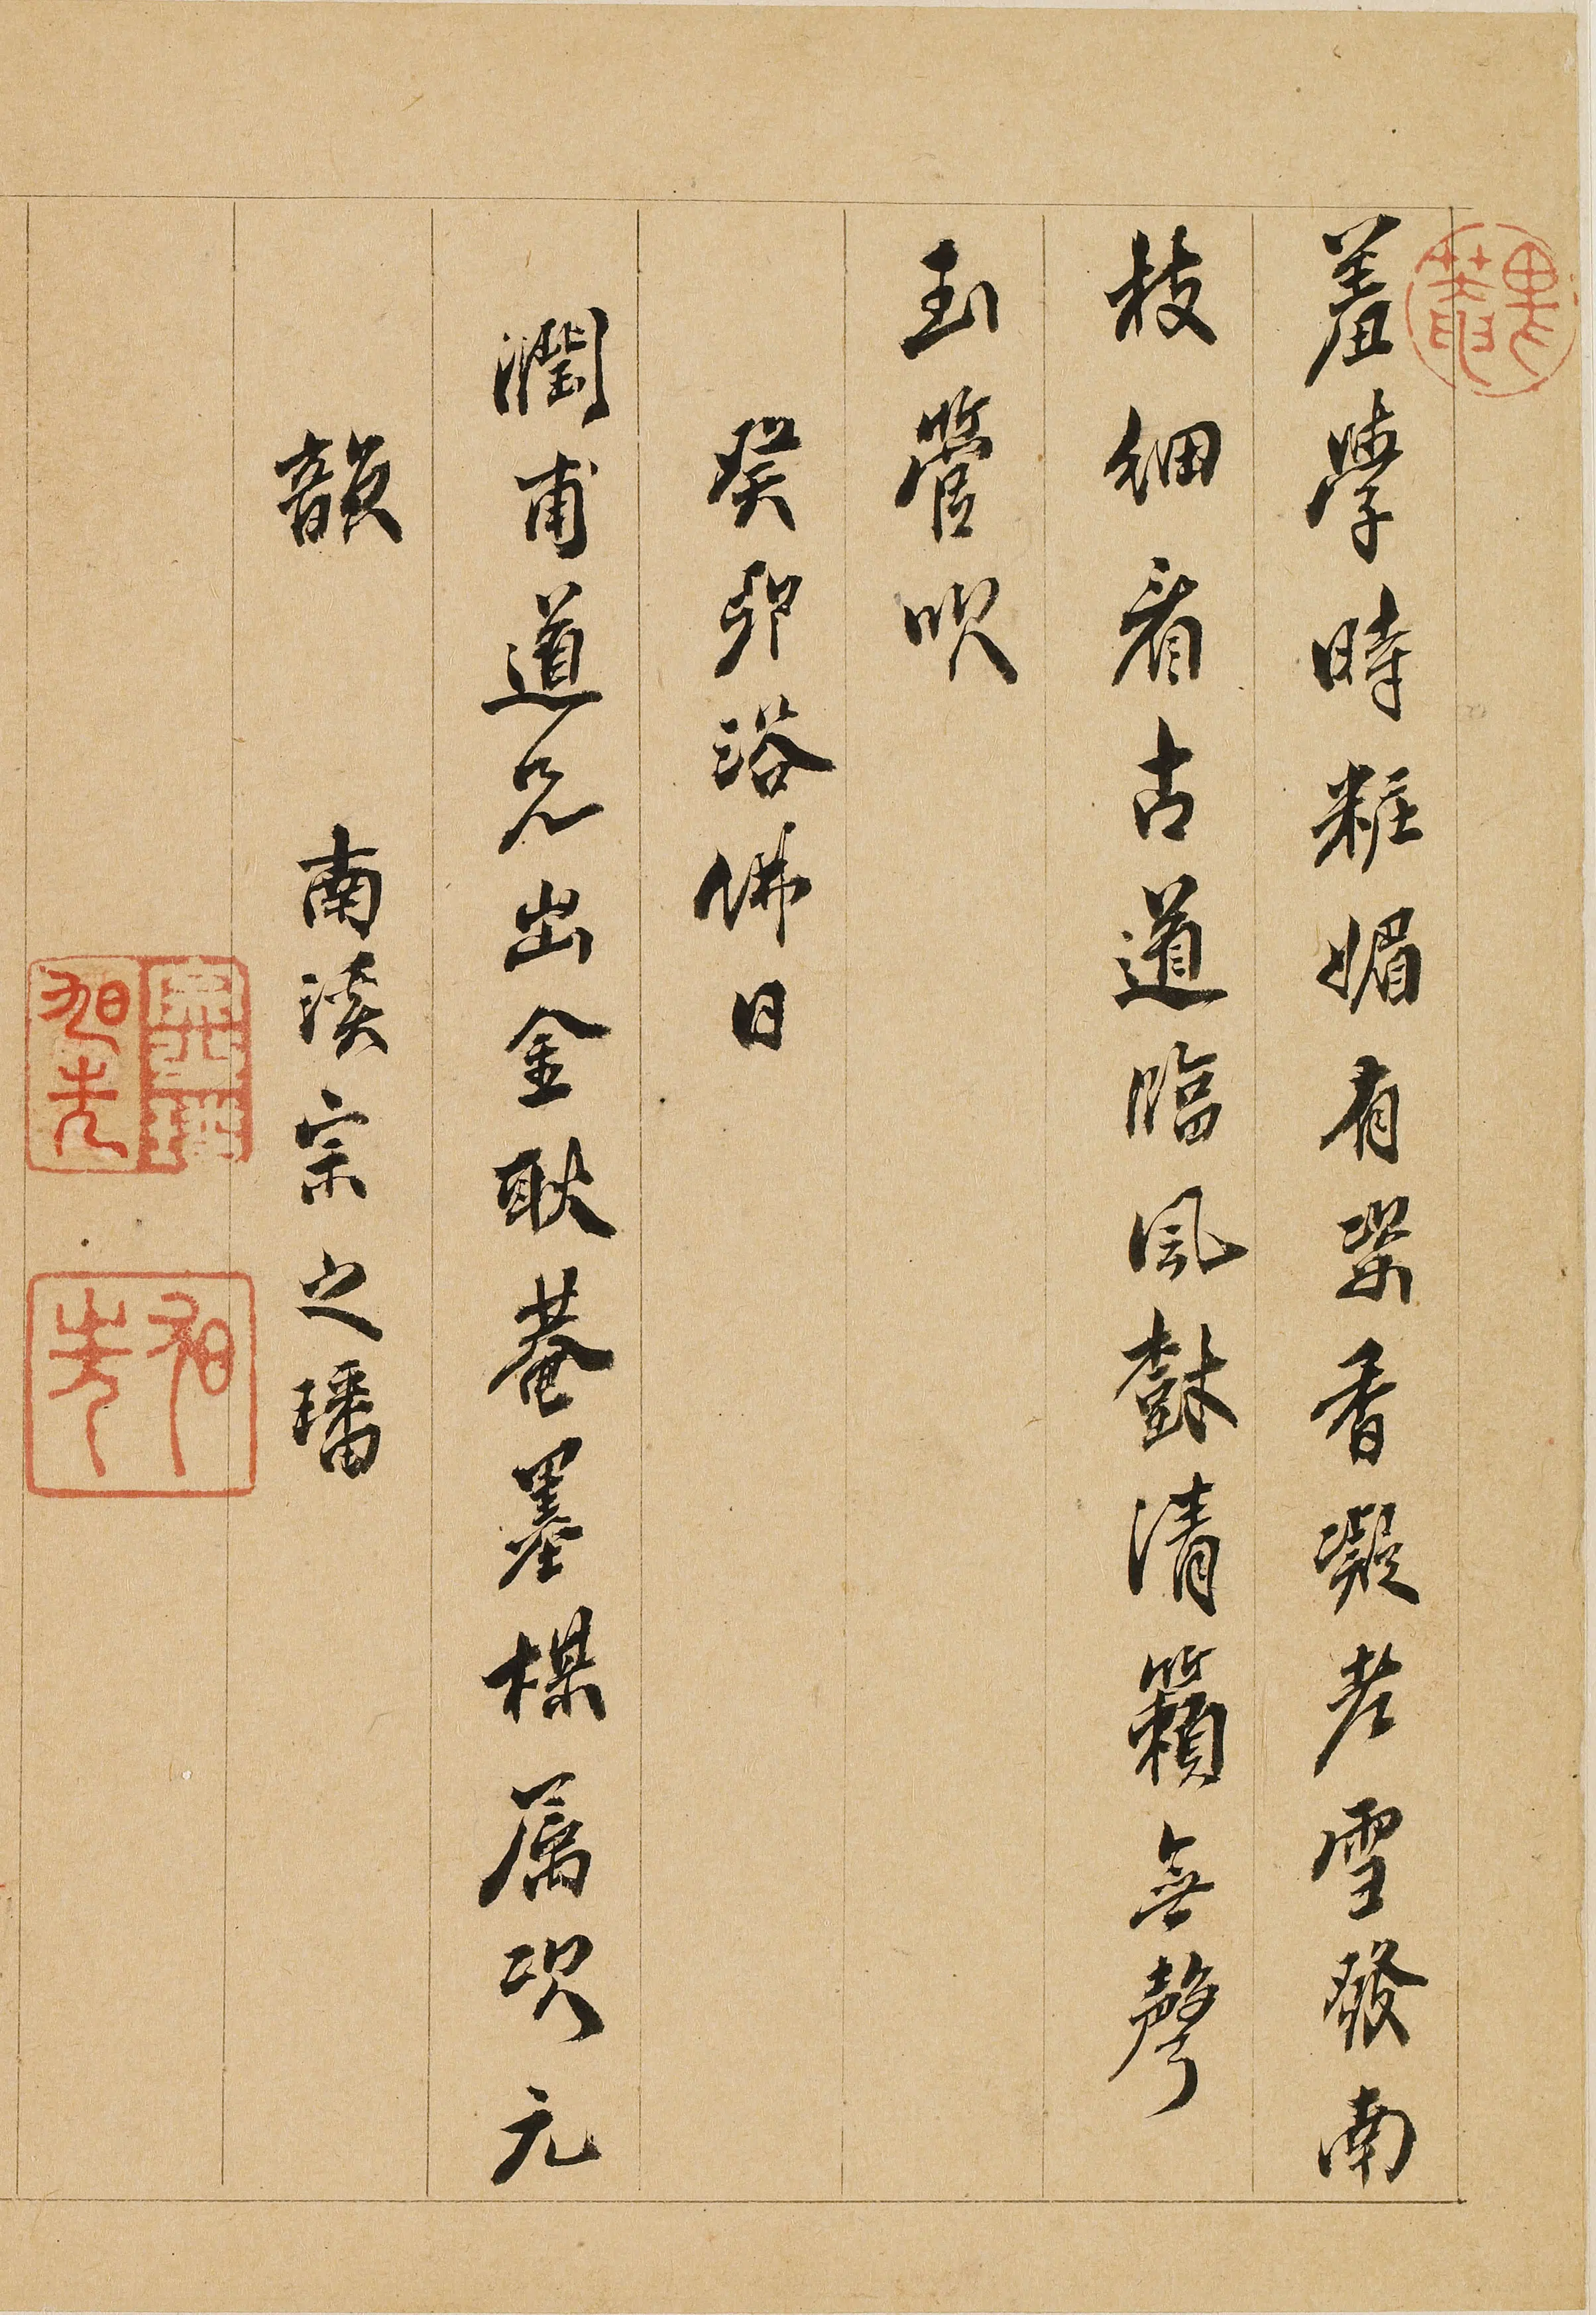 羞學時粧媚有梁香凝老雪發南
枝細看古道臨風獃清籟無聲
玉管吹
癸卯浴佛日
潤甫道兄出金耿菴墨楳属次元
韻
南溪宗之璠